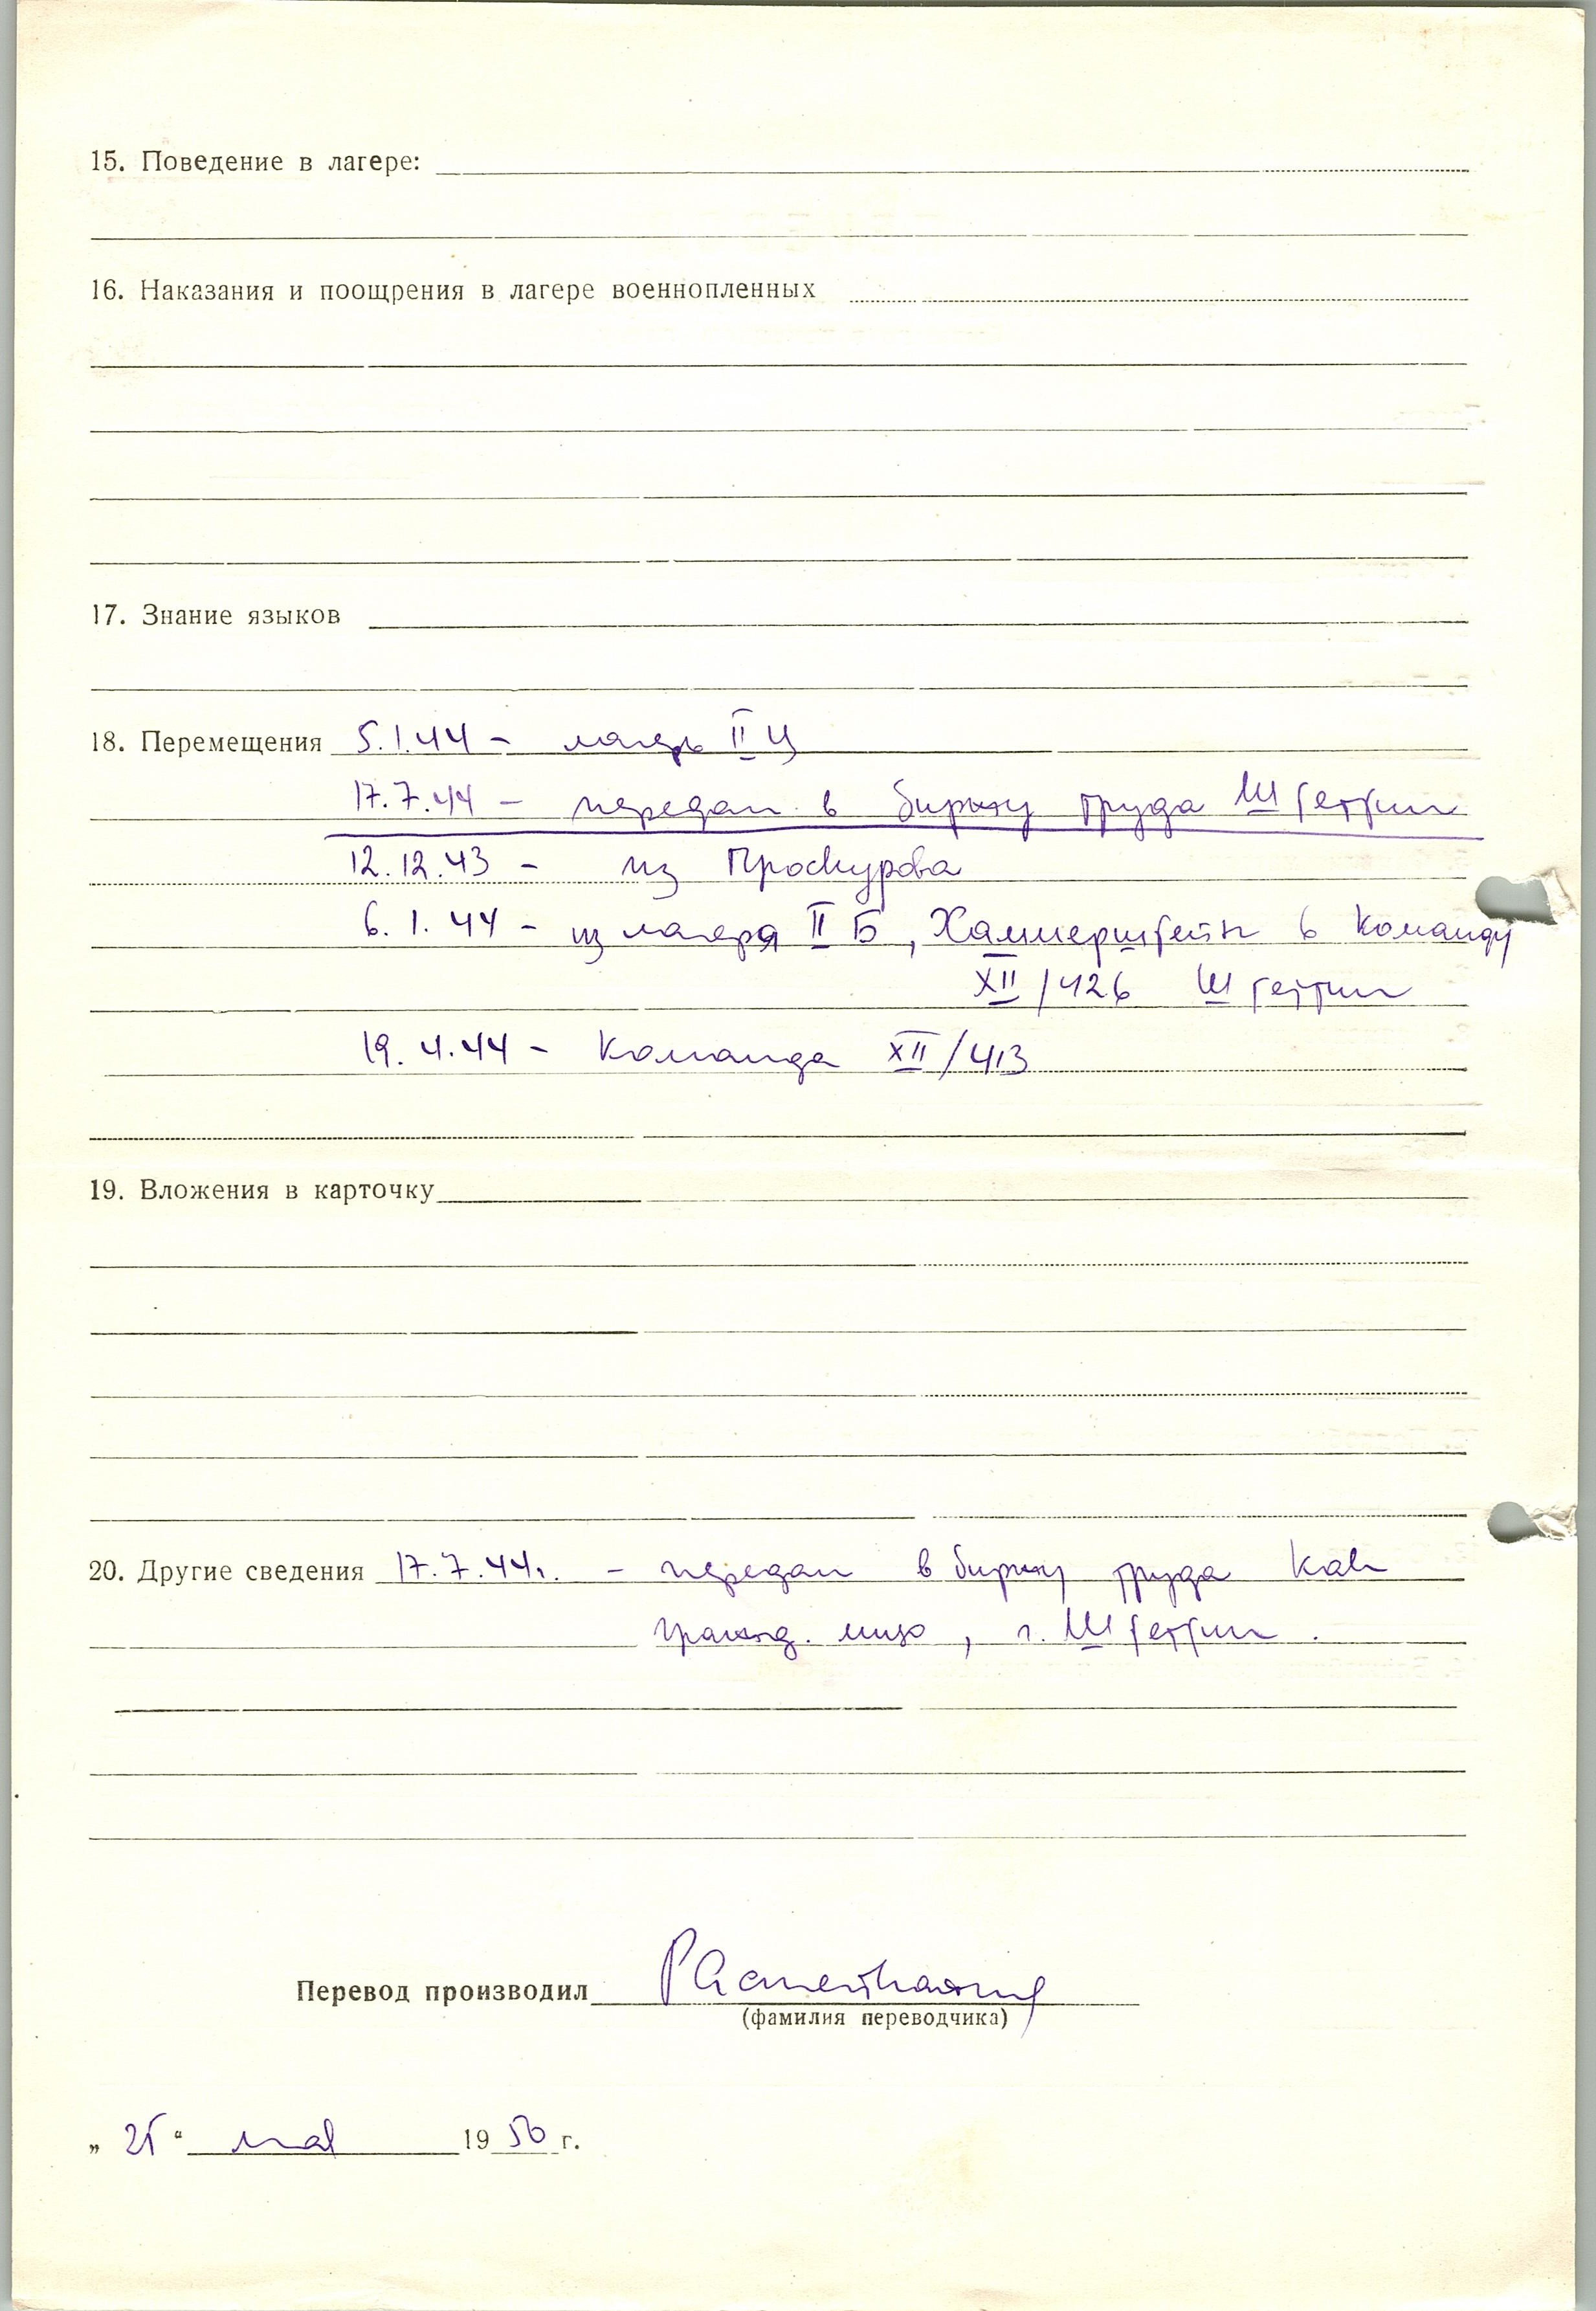 15. Поведение в лагере:
16. Наказания и поощрения в лагере военнопленных
17. Знание языков
18. Перемещения 5.1.44 - лагерь II Ц
17.7.44 - передан в биржу труда Штеттин
12.12.43 - из Проскурова
6.1.44 - из лагеря II Б, Хаммерштейн в команду
XII/426 Штеттин
19.4.44 - Команда XII/413
19. Вложения в карточку
20. Другие сведения 17.7.44г. - передан в биржу труда как
гражд. лицо, г. Штеттин.
Перевод производил
(фамилия переводчика)
„25“ мая 1950 г.